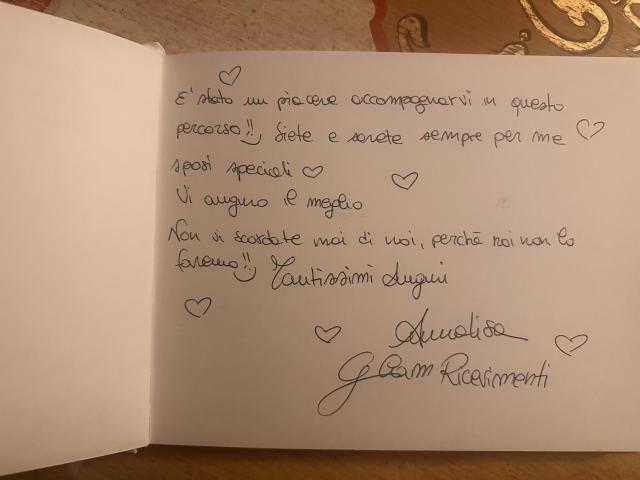 E' stato un piacere accompagnarvi in questo
percorso!! Siete e sarete sempre per me
sposi speciali
Vi auguro il meglio
Non vi scordate mai di noi, perchè noi non lo
faremo!! Tantissimi Auguri
Annalisa
Glam Ricevimenti